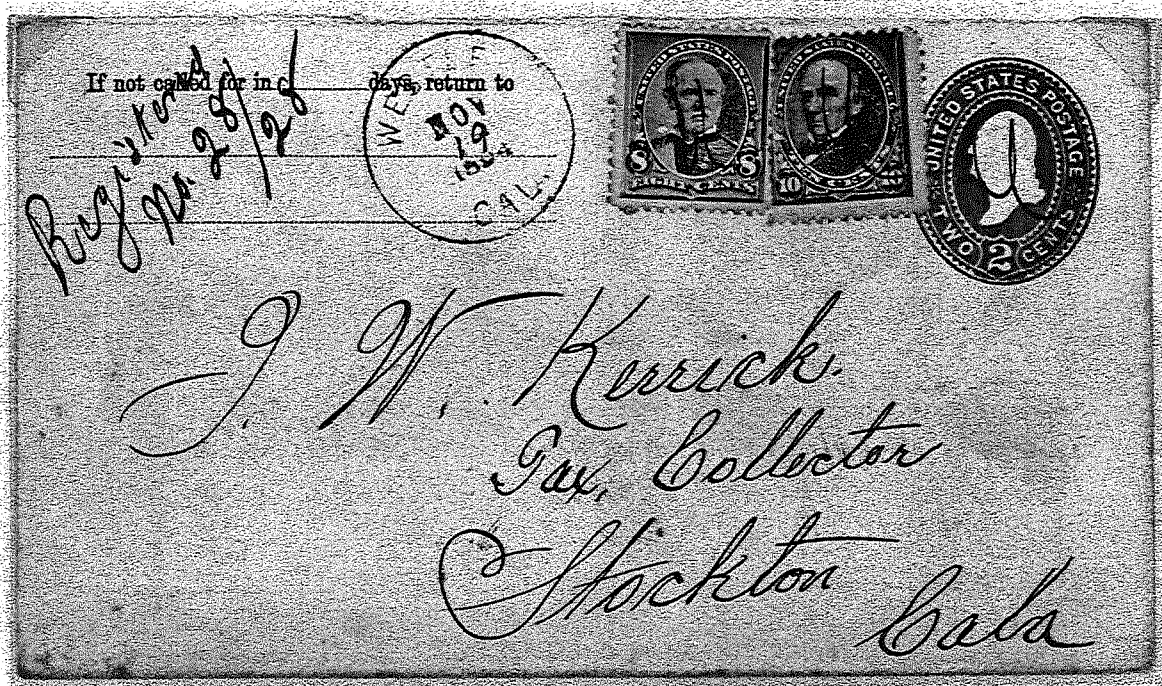 If not called for in days, return to
Registered
No. 28/28
WE
NOV
19
CAL.
UNITED STATES
8 8
EIGHT CENTS
10
UNITED STATES POSTAGE
TWO 2 CENTS
J. W. Kerrick.
Tax, Collector
Stockton
Cala